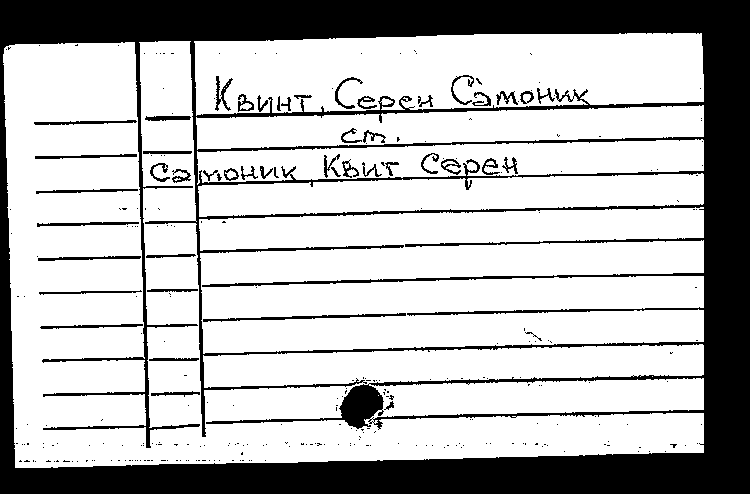 Квинт, Серен Сэмоник
ст.
Сэмоник, Квит Серен